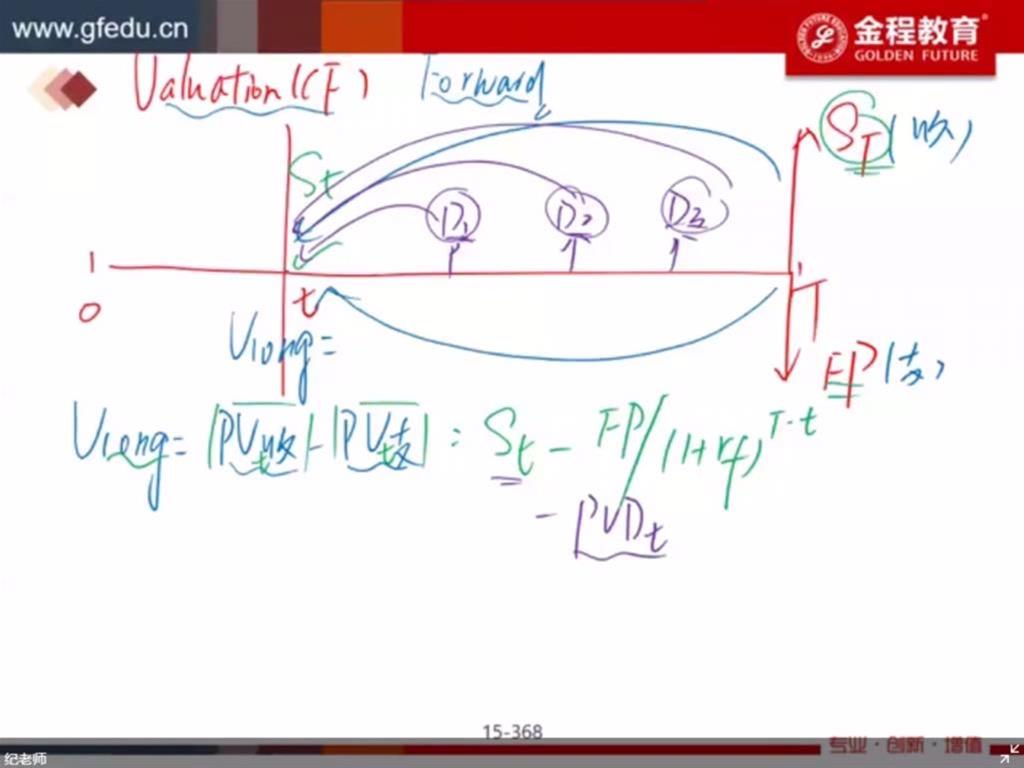 www.gfedu.cn
金程教育®
GOLDEN FUTURE
Valuation(CF) Forward
S_T(收)
S_t
D₁ D₂ D₃
0 t T
V_long=
FP(支)
V_long=|PV_t收|-|PV_t支|: S_t - FP/(1+rf)^{T-t}
- PVD_t
15-368
专业·创新·增值
纪老师